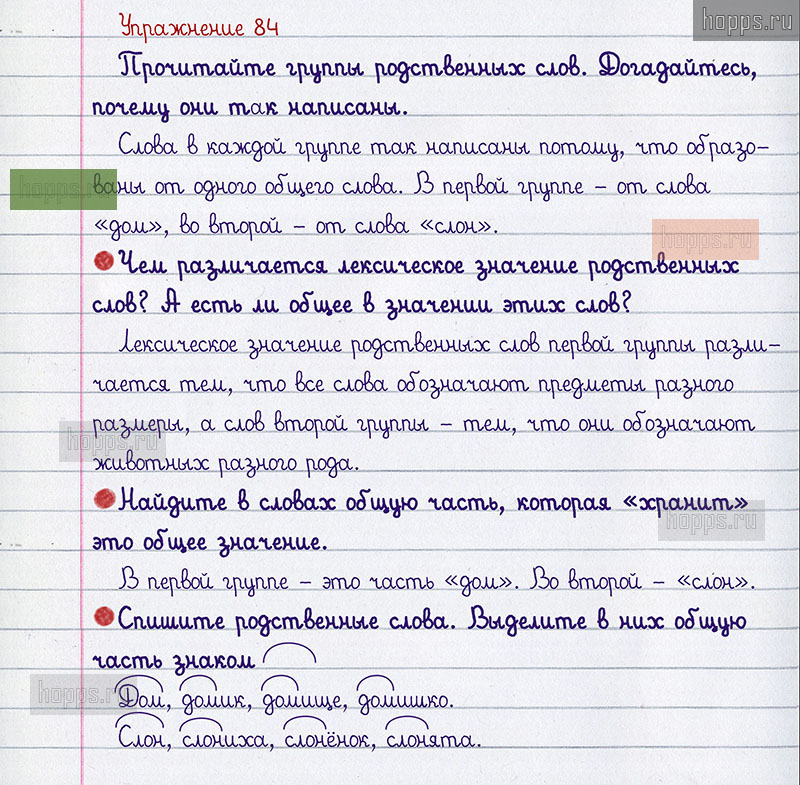 hopps.ru
Упражнение 84
Прочитайте группы родственных слов. Догадайтесь,
почему они так написаны.
Слова в каждой группе так написаны потому, что образо-
ваны от одного общего слова. В первой группе – от слова
hopps.ru
«дом», во второй – от слова «слон».
hopps.ru
Чем различается лексическое значение родственных
слов? А есть ли общее в значении этих слов?
Лексическое значение родственных слов первой группы разли-
чается тем, что все слова обозначают предметы разного
размеры, а слов второй группы – тем, что они обозначают
hopps.ru
животных разного рода.
Найдите в словах общую часть, которая «хранит»
hopps.ru
это общее значение.
В первой группе – это часть «дом». Во второй – «слон».
Спишите родственные слова. Выделите в них общую
часть знаком
hopps.ru
Дом, домик, домище, домишко.
Слон, слониха, слонёнок, слонята.